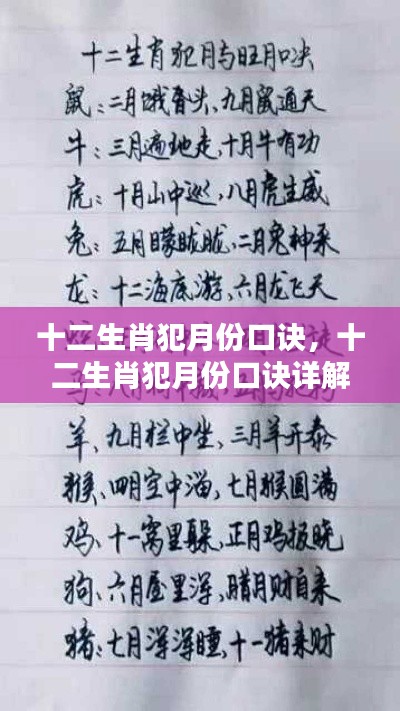 十二生肖犯月与旺月口决
鼠:二月饿昏头,九月鼠通天
牛:三月遍地走,十月牛有功
虎:十月山中巡,八月虎生威
兔:五月曚眬胧,二月兔神采
龙:十二海底游,六月龙飞天
十二生肖犯月份口诀,十
二生肖犯月份口诀详解
羊、九月栏中坐,三月羊开泰
猴、四月空中溜,七月猴圆满
鸡、十一窝里躲,正月鸡报晓
狗、六月屋里浑,腊月财自来
猪:七月浑浑睡,十一猪来财